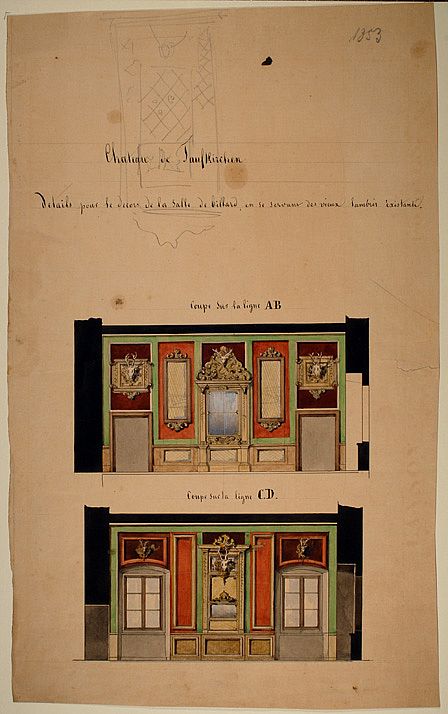 1353
Château de Taufkirchen
Détails pour le décors de la Salle de billard, en se servant des vieux lambris existants.
Coupe sur la ligne AB
Coupe sur la ligne CD.